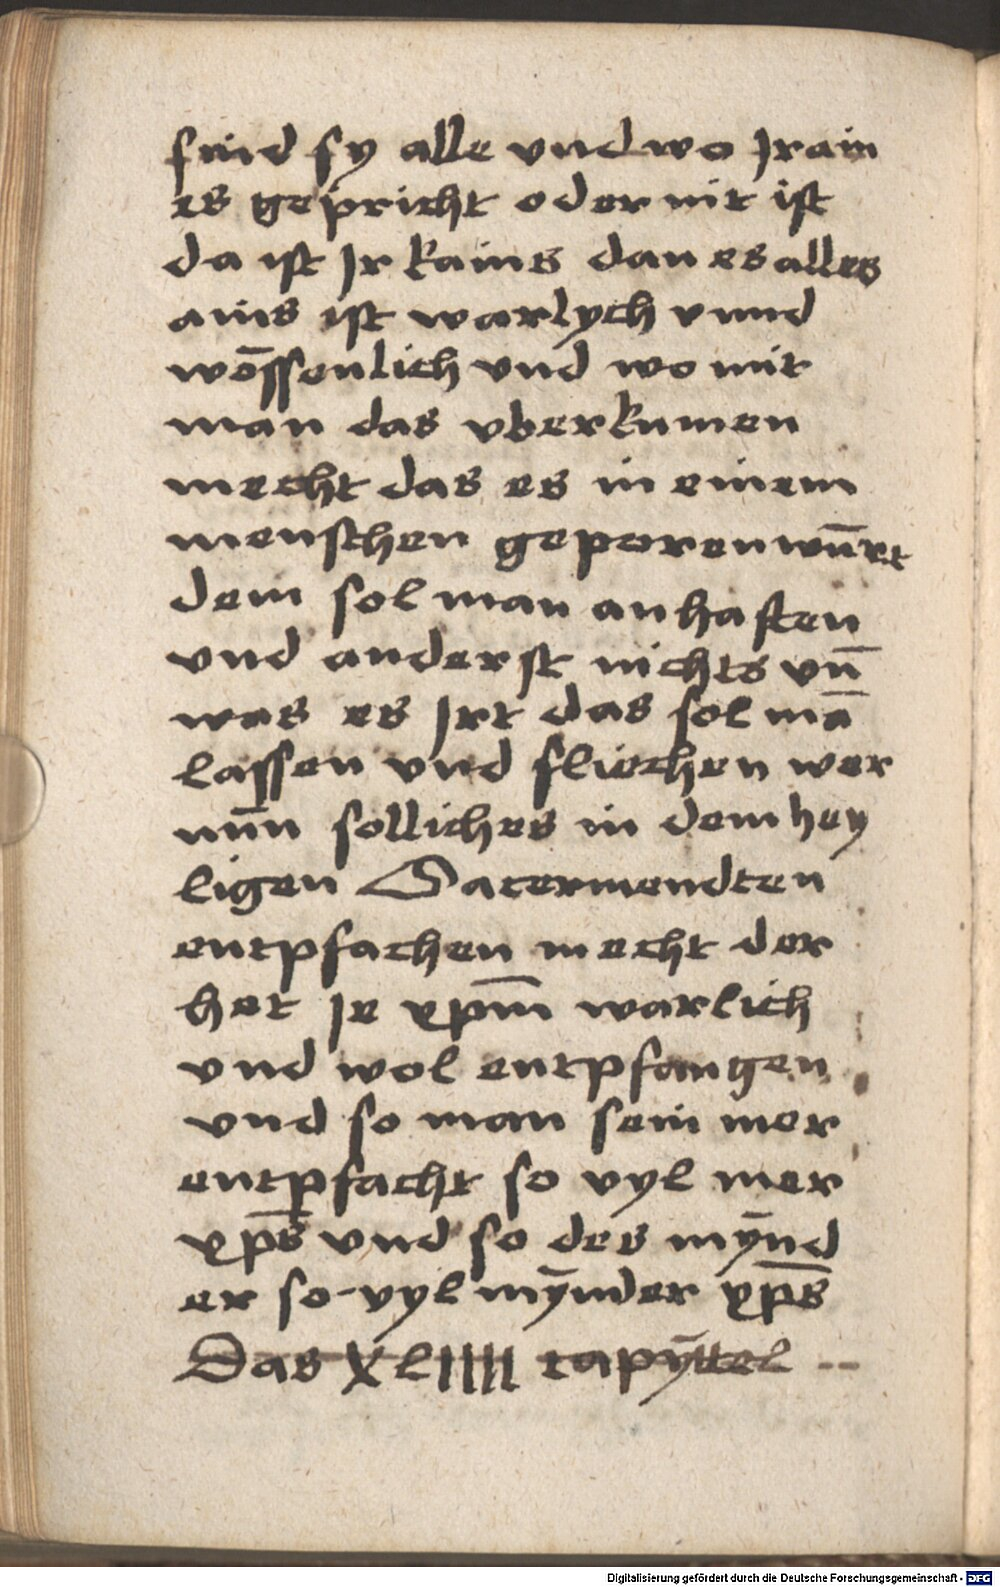 sind sy alle vnd wo Jr ain
es gepricht oder nit ist
da ist Jr kains dan es alles
ains ist warlych vnnd
wo̅ssenlich vnd wo mit
man das vberkumen
mecht das es in einem
menschen geporen wu̅rt
dem sol man an haften
vnd anderst nichts vn̅
was es Jrt das sol ma̅
lassen vnd fliechen wer
nun̅ solliches in dem hey
ligen Sacermendten
entpfachen mecht der
het Je xpm̅ warlich
vnd wol entpfangen
vnd so man sein mer
entpfacht so vyl mer
xps̅ vnd so des my̅nd
er so vyl my̅nder xps̅
Das XlIIII capy̅ttel --
Digitalisierung gefördert durch die Deutsche Forschungsgemeinschaft - DFG